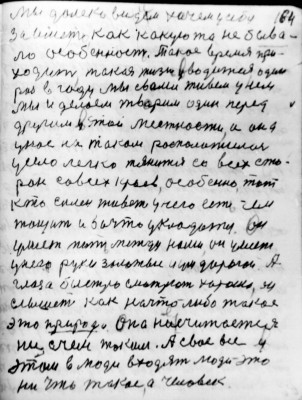 мы далеко видим зачем у себя 164
займеть как какую та не быва-
ло особенность. Такое время при-
ходит, такая жизнь вводится один
раз в году мы свами живем у нем
мы и делаем творим один перед
другим у той местности, а она
у нас их таком расположилася
усело легко тянится со всех сто-
рон со всех краев, особенно тот
кто сам живет у него есть чем
тащит и во что укладать. Он
умеет тот, между нами он умеет
у него руки золотые и он дорогой. А
глаза быстро смотрят хорошо, ну
слышет как на что либо такое
это природа. Она не считается
ни с чем таким. А свое все и
этим в люди входят люди это
ни что такое, а человек.